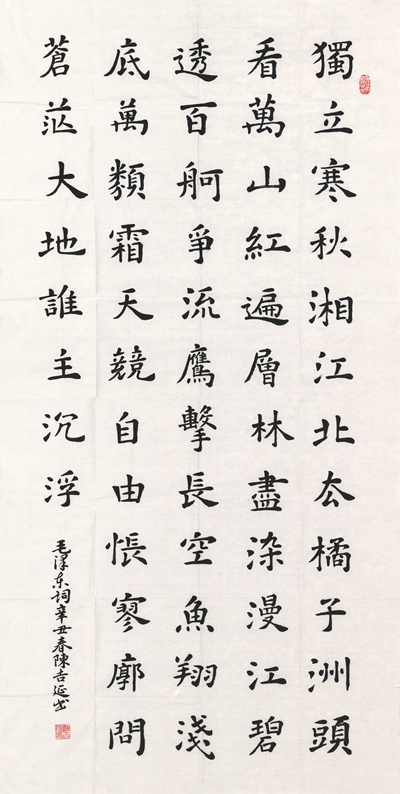 獨立寒秋湘江北厺橘子洲頭
看萬山紅遍層林盡染漫江碧
透百舸爭流鷹擊長空魚翔淺
底萬類霜天競自由悵寥廓問
蒼茫大地誰主沉浮
毛澤东詞辛丑春陳吉延书